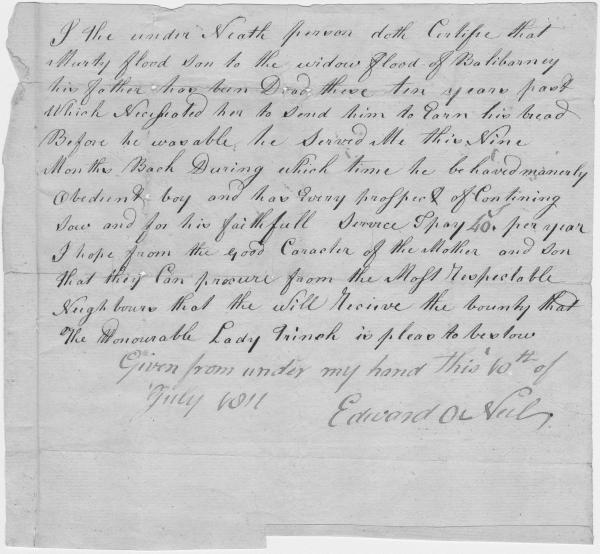 I the under Neath person doth Certifie that
Murty flood son to the widow flood of Balibarney
his father has been Dead these ten years past
Which Necessated her to send him to Earn his bread
Before he was able, he Served Me this Nine
Months Back During which time he behaved manerly
Obedient boy and has Every prospect of Contining
sow and for his faithfull Service I pay 40s. per year
I hope from the Good Caracter of the Mother and son
that they Can procure from the Most Respectable
Neighbours that the will Recieve the bounty that
the Honourable Lady Trinch is pleas to bestow
Given from under my hand this 10th of
July 1811
Edward O Neil